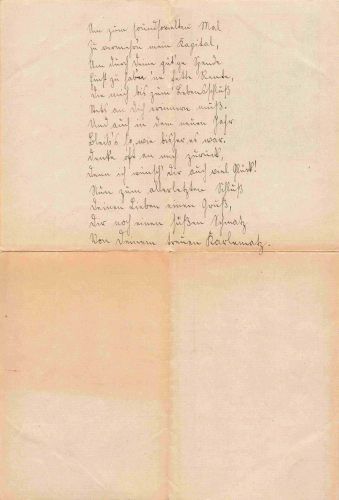 Um zum soundsovielten Mal
zu vermehr'n mein Kapital,
Um durch Deine güt'ge Spende
Einst zu haben 'ne fette Rente,
Die mich bis zum Lebensschluß
Stets an Dich erinnern muß.
Und auch in dem neuen Jahr
Bleib's so, wie bisher es war.
Denke oft an mich zurück,
Denn ich wünsch' Dir auch viel Glück!
Nun zum allerletzten Schluß
Deinen Lieben einen Gruß,
Dir noch einen süßen Schmatz
Von Deinem treuen Karlematz.